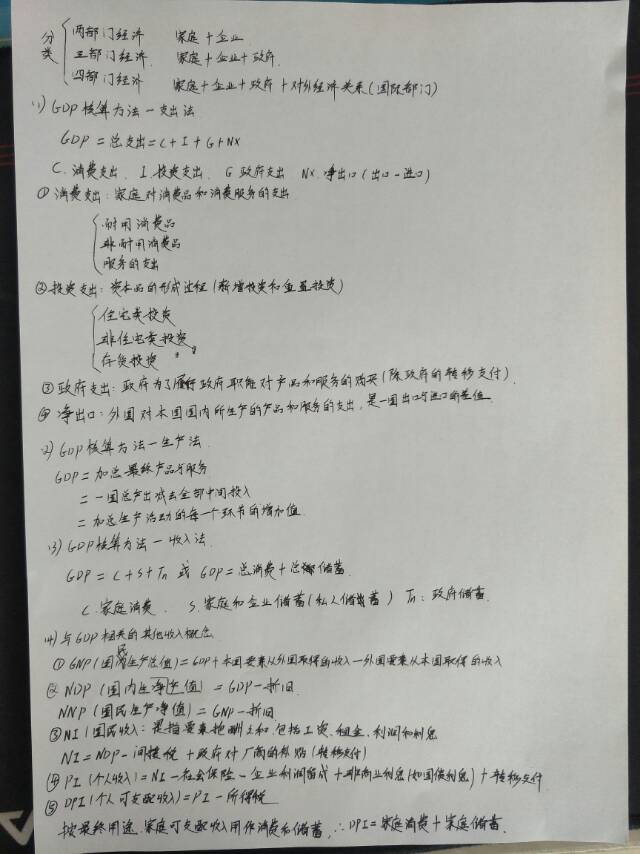 分类
两部门经济 家庭+企业
三部门经济. 家庭+企业+政府.
四部门经济 家庭+企业+政府+对外经济关系(国际部门)
(1) GDP核算方法—支出法
GDP=总支出=C+I+G+NX
C.消费支出、I.投资支出、G 政府支出 NX.净出口(出口-进口)
① 消费支出:家庭对消费品和消费服务的支出.
耐用消费品
非耐用消费品
服务的支出
②投资支出:资本品的形成过程(新增投资和重置投资)
住宅类投资
非住宅类投资
存货投资
③政府支出:政府为了履行政府职能对产品和服务的购买(除政府的转移支付).
④ 净出口:外国对本国国内所生产的产品和服务的支出,是一国出口与进口的差值.
(2) GDP核算方法—生产法.
GDP=加总最终产品与服务
=一国总产出减去全部中间投入
=加总生产活动的每一个环节的增加值.
(3) GDP核算方法—收入法.
GDP=C+S+Tn 或 GDP=总消费+总储蓄.
C.家庭消费. S.家庭和企业储蓄(私人储蓄) Tn:政府储蓄.
(4)与GDP相关的其他收入概念.
①GNP(国民生产总值)=GDP+本国要素从外国取得的收入-外国要素从本国取得的收入
② NDP(国内生产净值)=GDP-折旧.
NNP(国民生产净值)=GNP-折旧.
③NI(国民收入:是指要素报酬之和.包括工资、租金、利润和利息
NI=NDP-间接税+政府对厂商的补贴(转移支付)
④PI(个人收入)=NI-社会保险-企业利润留成+非商业利息(如国债利息)+转移支付
⑤ DPI(个人可支配收入)=PI-所得税
按最终用途.家庭可支配收入用作消费和储蓄,∴DPI=家庭消费+家庭储蓄.